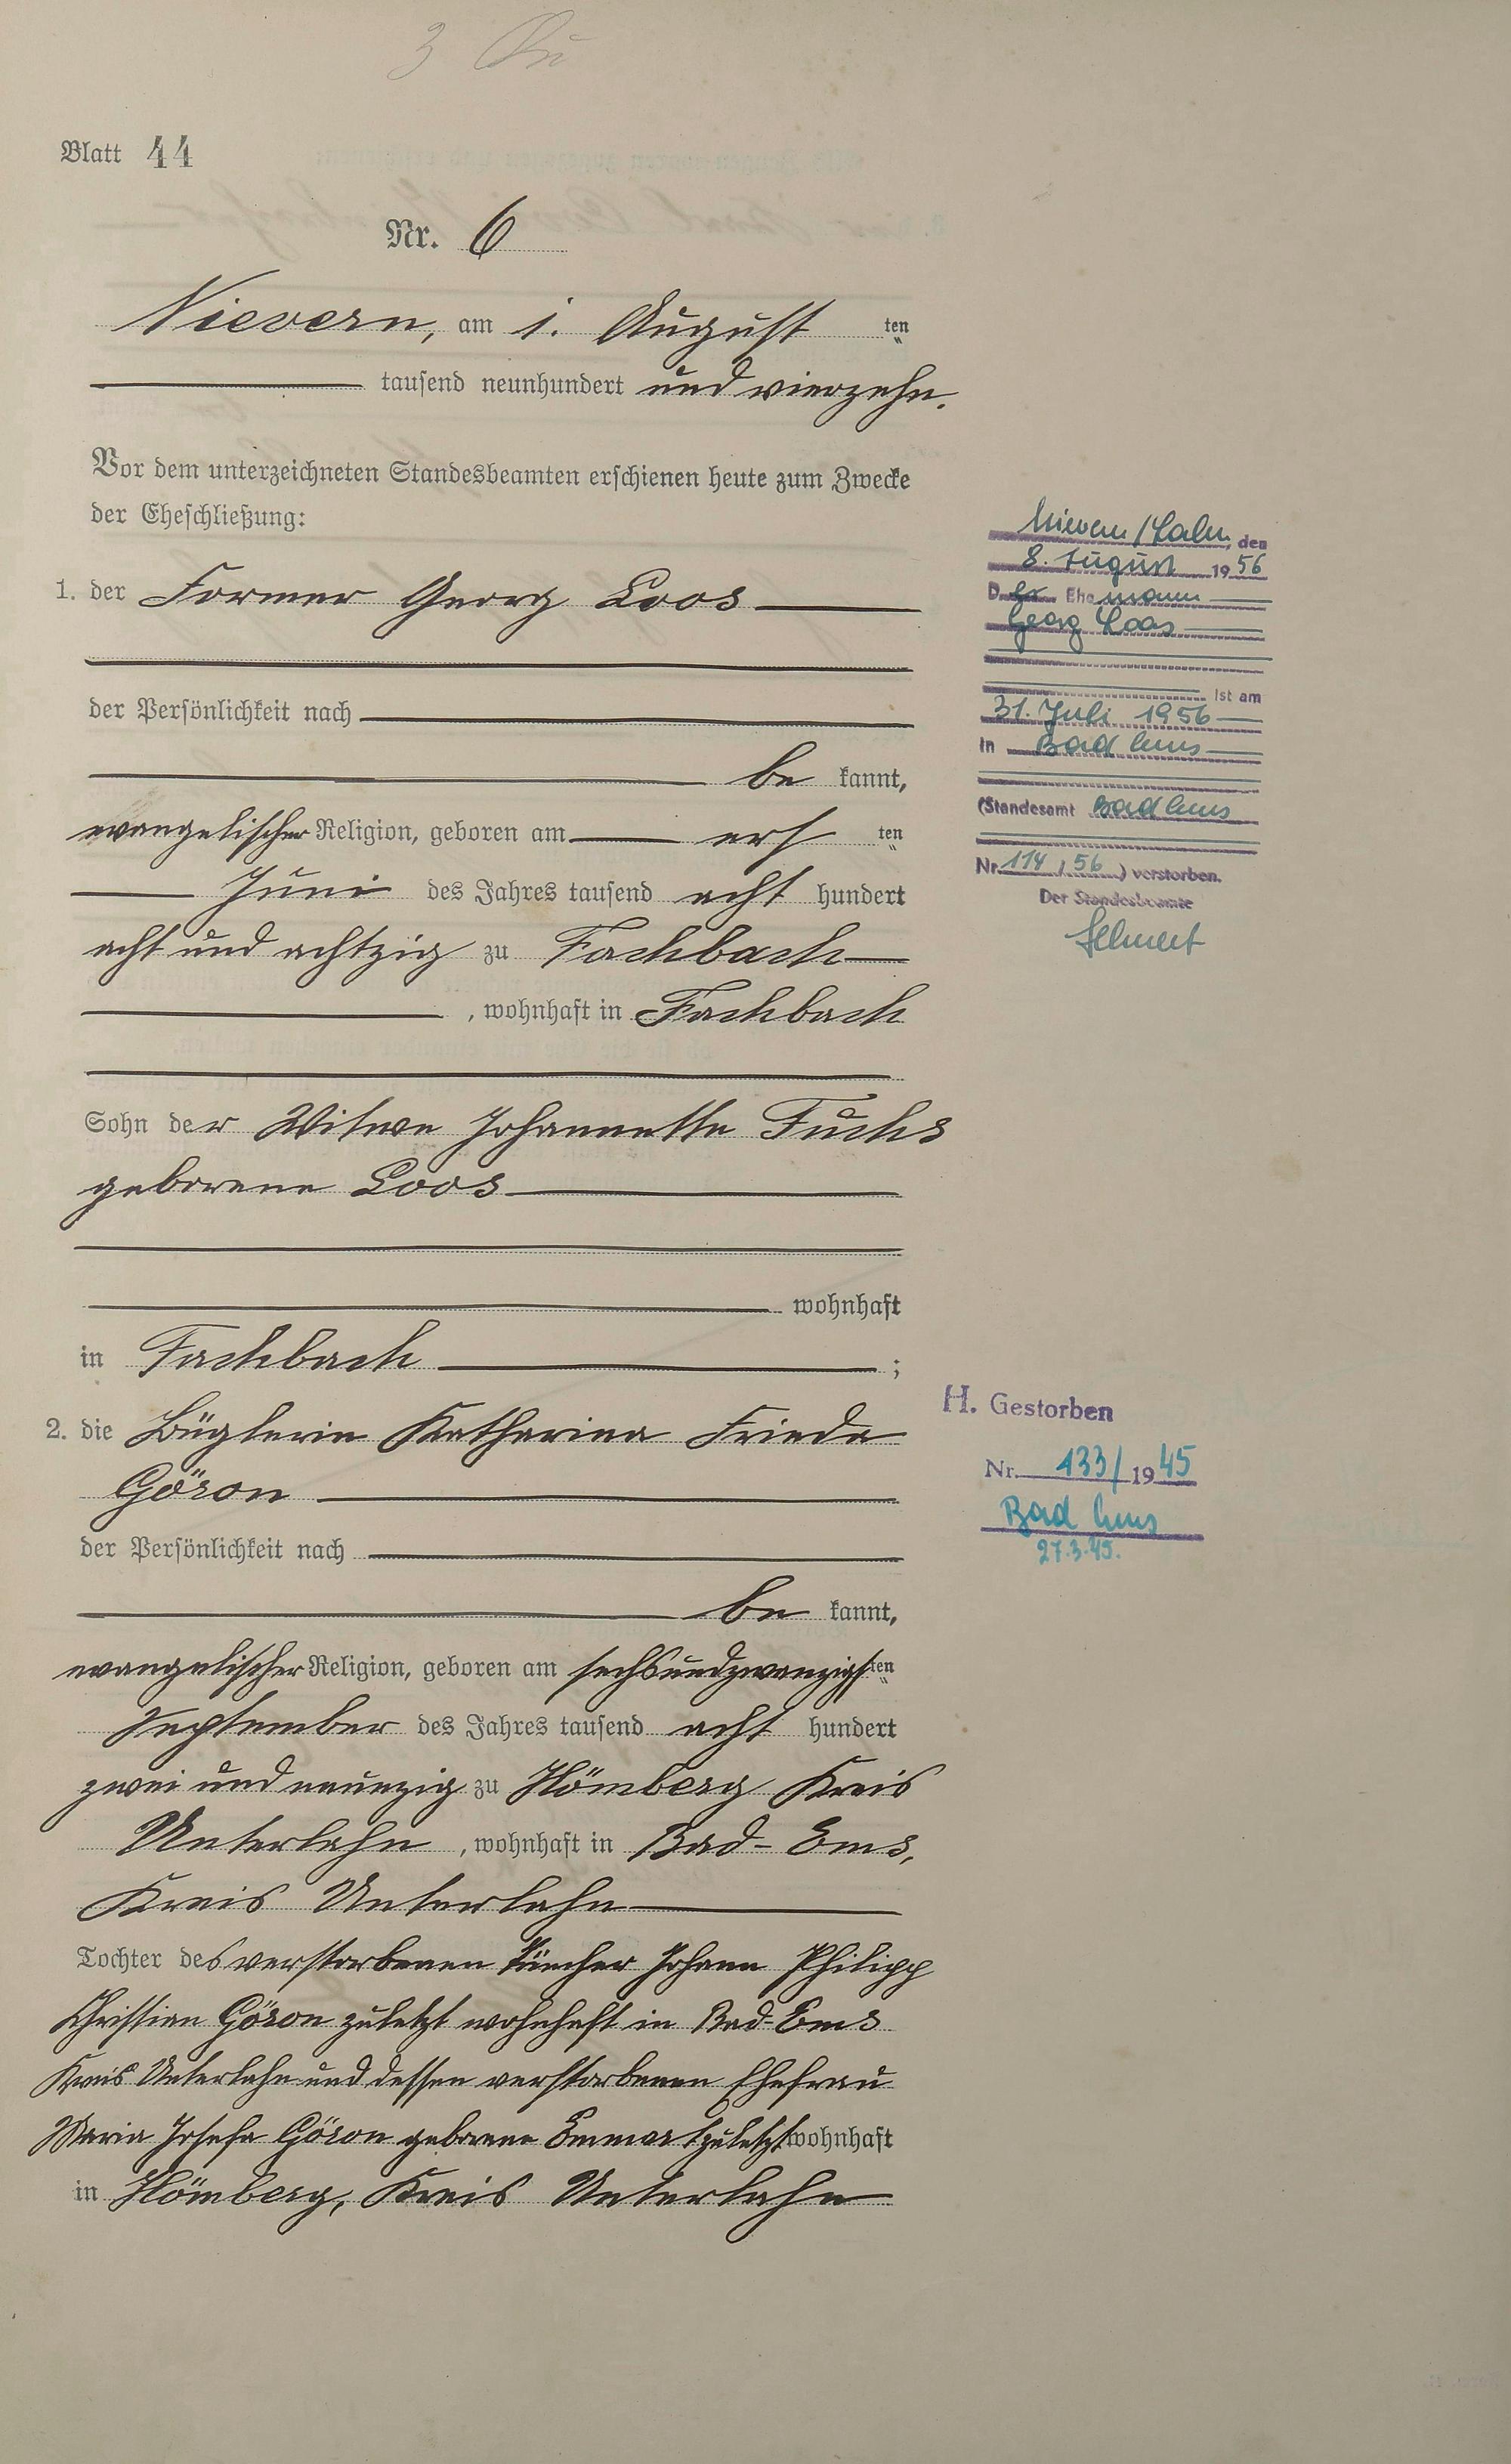 Blatt 44
Nr. 6
Nievern, am 1. August ten
tausend neunhundert und vierzehn.
Vor dem unterzeichneten Standesbeamten erschienen heute zum Zwecke
der Eheschließung:
1. der Former Georg Loos
der Persönlichkeit nach
be kannt,
evangelischer Religion, geboren am ers ten
Juni des Jahres tausend acht hundert
acht und achtzig zu Fachbach
, wohnhaft in Fachbach
Sohn der Witwe Johannette Fuchs
geborene Loos
wohnhaft
in Fachbach ;
2. die Büglerin Katharina Frieda
Göron
der Persönlichkeit nach
be kannt,
evangelischer Religion, geboren am sechsundzwanzigsten
September des Jahres tausend acht hundert
zwei und neunzig zu Hömberg Kreis
Unterlahn, wohnhaft in Bad-Ems,
Kreis Unterlahn
Tochter des verstorbenen Tüncher Johann Philipp
Christian Göron zuletzt wohnhaft in Bad-Ems
Kreis Unterlahn und dessen verstorbenen Ehefrau
Maria Josefa Göron geborene zuletzt wohnhaft
in Hömberg, Kreis Unterlahn
Nievern/Lahn, den
8. August 1956
Der Ehemann
Georg Loos
ist am
31. Juli 1956
in Bad Ems
(Standesamt Bad Ems
Nr. 114 / 56) verstorben.
Der Standesbeamte
H. Gestorben
Nr. 133/1945
Bad Ems
27.3.45.